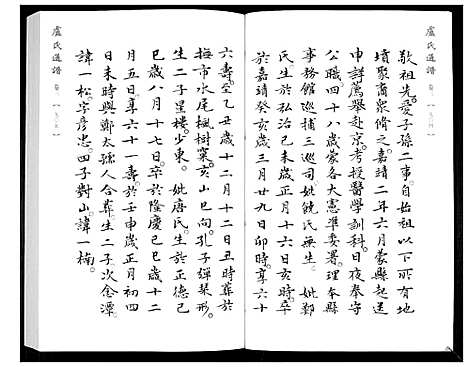 盧氏通譜
敬祖先愛子孫二事自始祖以下所有地
墳聚商眾脩之嘉靖二年六月蒙縣起送
申詳薦舉赴京考授醫學訓科日夜奉守
公職四十八歲蒙各大憲準委署理本縣
事務館巡捕三巡司妣饒氏無生 妣鄭
氏生於弘治己未歲正月十六日亥時卒
於嘉靖癸亥歲三月廿九日卯時享六十
六壽至乙丑歲十二月十二日丑時葬於
梅市水尾楓樹窠亥山巳向孔子彈琴形
生二子星樓少東 妣唐氏生於正德己
巳歲八月十七日卒於隆慶己巳歲十二
月五日享六十一壽於壬申歲正月初四
日未時與鄭太孺人合葬生二子次念潭
諱一松字彥忠四子對山諱一楠
盧氏通譜